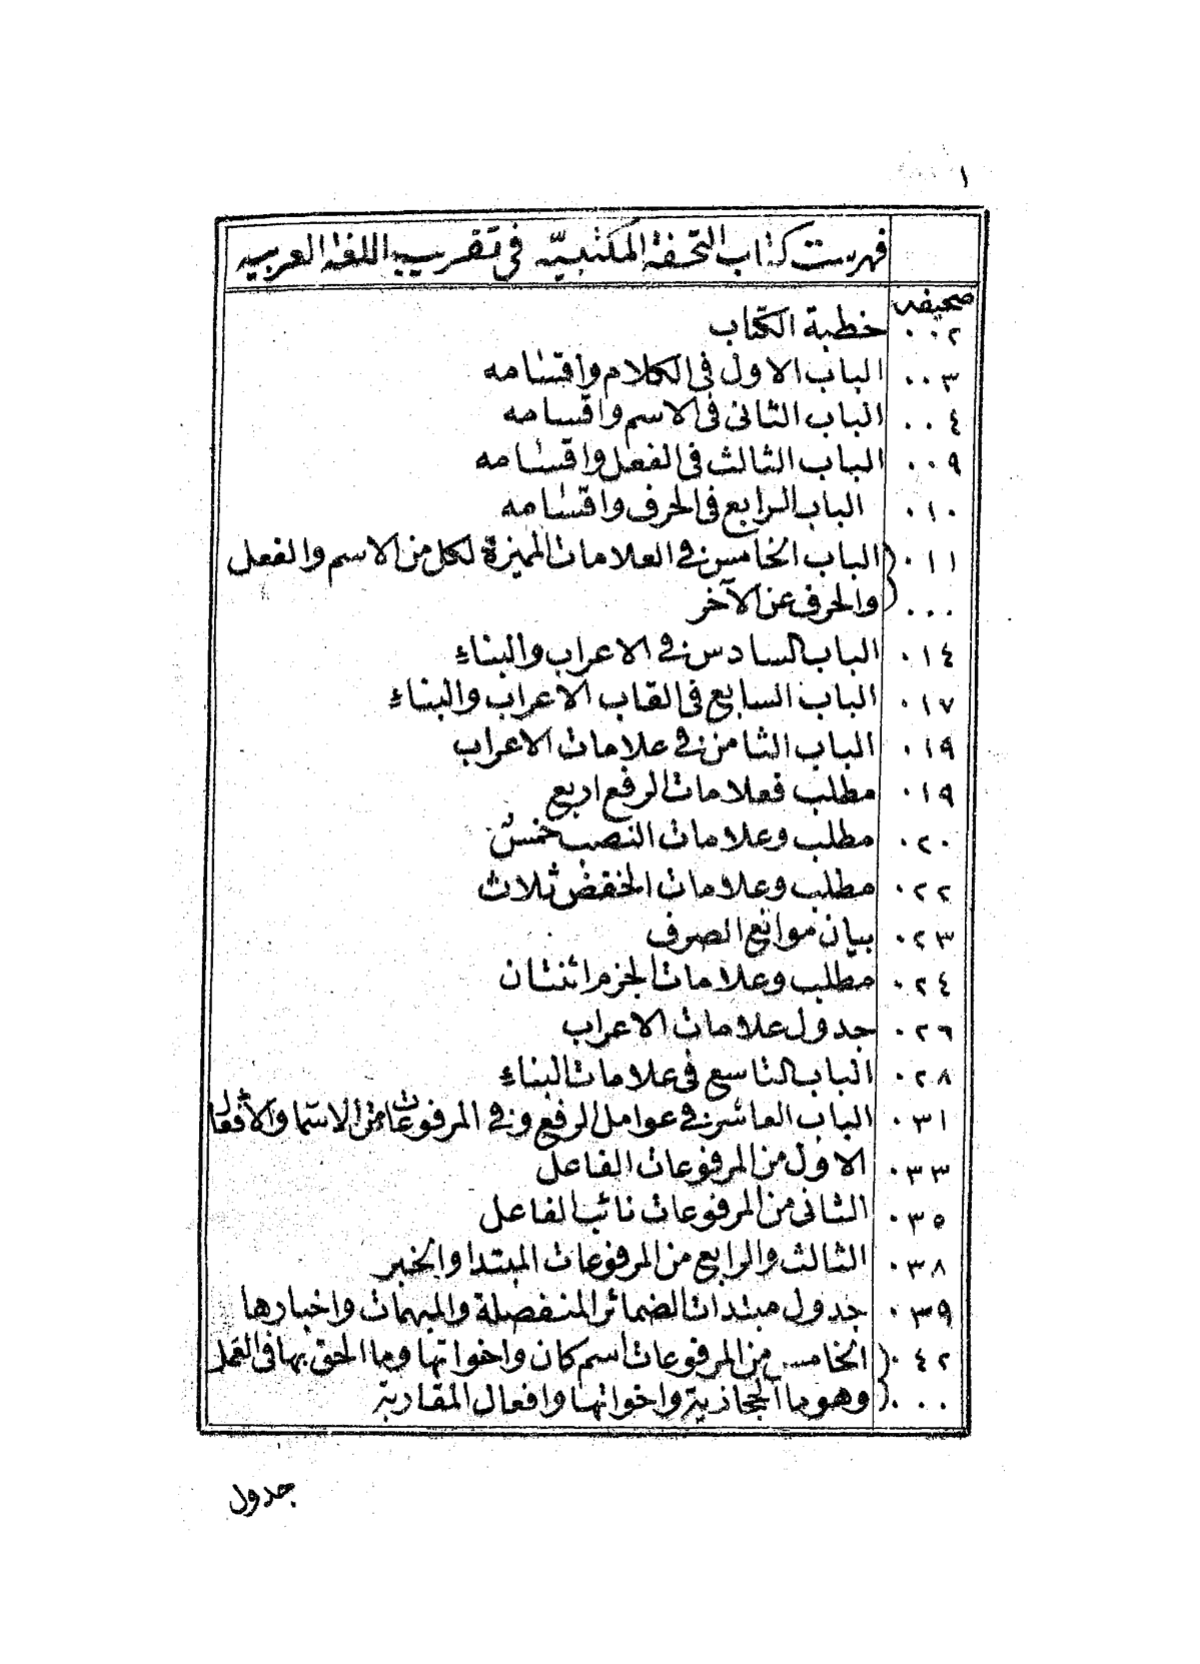 ١
فهرست كتاب التحفة المكتبيه فى تقريب اللغة العربيه
صحيفه
٠٠٢ خطبة الكتاب
٠٠٣ الباب الاول فى الكلام واقسامه
٠٠٤ الباب الثانى فى الاسم واقسامه
٠٠٩ الباب الثالث فى الفعل واقسامه
٠١٠ الباب الرابع فى الحرف واقسامه
٠١١ الباب الخامس فى العلامات المميزة لكل من الاسم والفعل
٠٠٠ والحرف عن الآخر
٠١٤ الباب السادس فى الاعراب والبناء
٠١٧ الباب السابع فى القاب الاعراب والبناء
٠١٩ الباب الثامن فى علامات الاعراب
٠١٩ مطلب فعلامات الرفع اربع
٠٢٠ مطلب وعلامات النصب خمس
٠٢٢ مطلب وعلامات الخفض ثلاث
٠٢٣ بيان موانع الصرف
٠٢٤ مطلب وعلامات الجزم اثنتان
٠٢٦ جدول علامات الاعراب
٠٢٨ الباب التاسع فى علامات البناء
٠٣١ الباب العاشر فى عوامل الرفع وفى المرفوعات من الاسما والافعال
٠٣٣ الاول من المرفوعات الفاعل
٠٣٥ الثانى من المرفوعات نائب الفاعل
٠٣٨ الثالث والرابع من المرفوعات المبتدا والخبر
٠٣٩ جدول مبتدات الضمائر المنفصلة والمبهمات واخبارها
٠٤٢ الخامس من المرفوعات اسم كان واخواتها وما الحق بها فى العمل
٠٠٠ وهو ما الحجازية واخواتها وافعال المقاربة
جدول